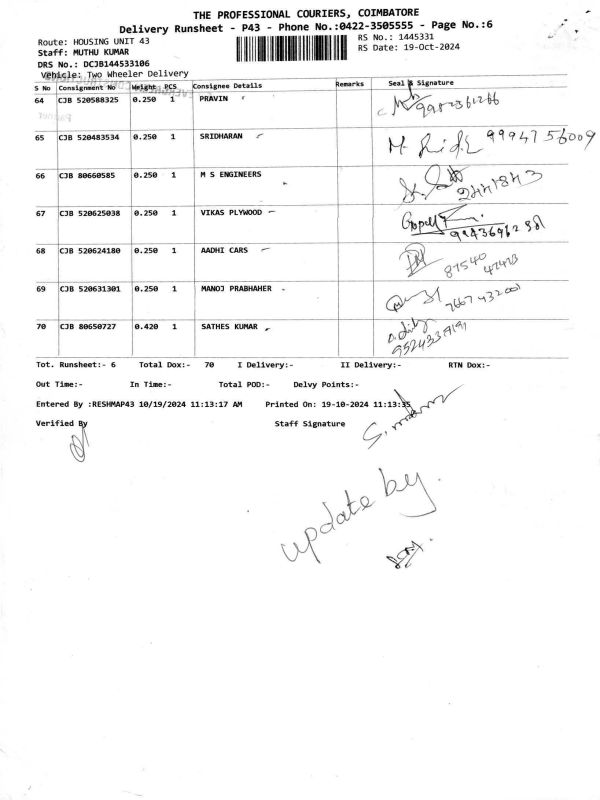 THE PROFESSIONAL COURIERS, COIMBATORE
Delivery Runsheet - P43 - Phone No.:0422-3505555 - Page No.:6
Route: HOUSING UNIT 43
RS No.: 1445331
Staff: MUTHU KUMAR
RS Date: 19-Oct-2024
DRS No.: DCJB144533106
Vehicle: Two Wheeler Delivery
S No Consignment No Weight PCS Consignee Details Remarks Seal & Signature
64 CJB 520588325 0.250 1 PRAVIN
65 CJB 520483534 0.250 1 SRIDHARAN 9994756009
66 CJB 80660585 0.250 1 M S ENGINEERS 2441843
67 CJB 520625038 0.250 1 VIKAS PLYWOOD
68 CJB 520624180 0.250 1 AADHI CARS 87540
69 CJB 520631301 0.250 1 MANOJ PRABHAHER
70 CJB 80650727 0.420 1 SATHES KUMAR
Tot. Runsheet:- 6 Total Dox:- 70 I Delivery:- II Delivery:- RTN Dox:-
Out Time:- In Time:- Total POD:- Delvy Points:-
Entered By :RESHMAP43 10/19/2024 11:13:17 AM Printed On: 19-10-2024 11:13:35
Verified By Staff Signature
update by.